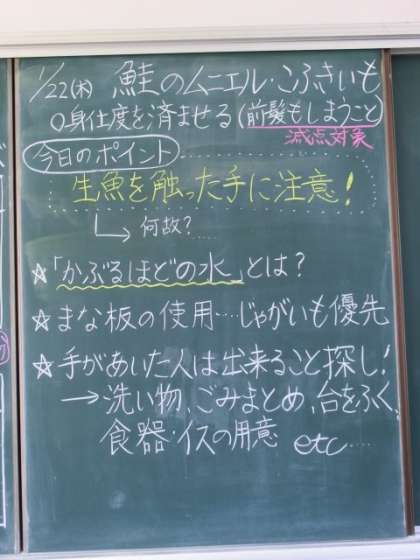 1/22(木) 鮭のムニエル・こふきいも
○身仕度を済ませる(前髪もしまうこと)
減点対象
今日のポイント
生魚を触った手に注意!
↳何故?……
☆「かぶるほどの水」とは?
☆まな板の使用…じゃがいも優先
☆手があいた人は出来ること探し!
→洗い物、ごみまとめ、台をふく、
食器・イスの用意 etc……